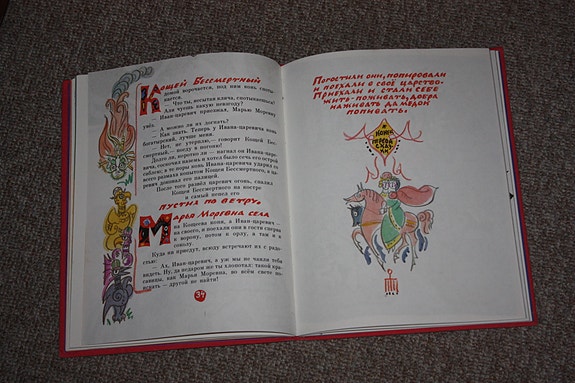 Кощей Бессмертный
домой ворочается, под ним конь споты-
кается.
— Что ты, несытая кляча, спотыкаешься?
Али чуешь какую невзгоду?
— Иван-царевич приезжал, Марью Моревну
увёз.
— А можно ли их догнать?
— Как знать. Теперь у Ивана-царевича конь
богатырский, лучше меня.
— Нет, не утерплю,— говорит Кощей Бес-
смертный,— поеду в погоню!
Долго ли, коротко ли — нагнал он Ивана-царе-
вича, соскочил наземь и хотел было сечь его острой
саблею; в те поры конь Ивана-царевича ударил со
всего размаху копытом Кощея Бессмертного, и ца-
ревич доконал его палицей.
После того развёл царевич огонь, спалил
Кощея Бессмертного на костре
и самый пепел его
пустил по ветру.
Марья Моревна села
на Кощеева коня, а Иван-царевич —
на своего, и поехали они в гости сперва
к ворону, потом к орлу, а там и к
соколу.
Куда ни приедут, всюду встречают их с радо-
стью:
— Ах, Иван-царевич, а уж мы не чаяли тебя
видеть. Ну, да недаром же ты хлопотал: такой кра-
савицы, как Марья Моревна, во всём свете по-
искать — другой не найти!
34
Погостили они, попировали
и поехали в своё царство.
Приехали и стали себе
жить-поживать, добра
наживать да медок
попивать.
первой
сказ
ки